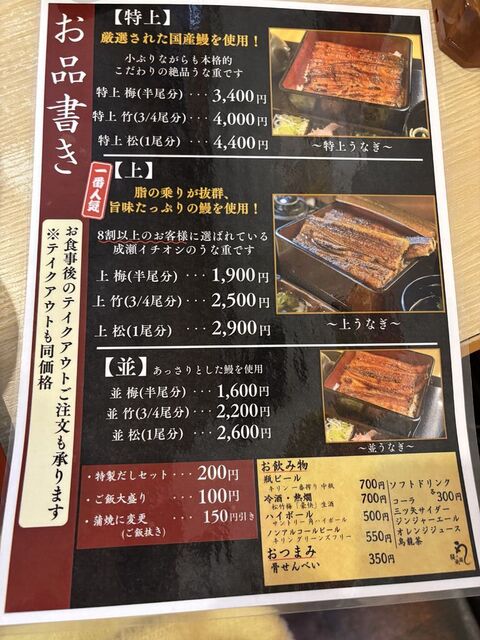 お品書き
【特上】
厳選された国産鰻を使用！
小ぶりながらも本格的
こだわりの絶品うな重です
特上 梅(半尾分)・・・3,400円
特上 竹(3/4尾分)・・・4,000円
特上 松(1尾分)・・・4,400円
～特上うなぎ～
一番人気
【上】
脂の乗りが抜群、
旨味たっぷりの鰻を使用！
8割以上のお客様に選ばれている
成瀬イチオシのうな重です
上 梅(半尾分)・・・1,900円
上 竹(3/4尾分)・・・2,500円
上 松(1尾分)・・・2,900円
～上うなぎ～
【並】あっさりとした鰻を使用
並 梅(半尾分)・・・1,600円
並 竹(3/4尾分)・・・2,200円
並 松(1尾分)・・・2,600円
～並うなぎ～
お食事後のテイクアウトご注文も承ります
※テイクアウトも同価格
・特製だしセット・・・200円
・ご飯大盛り・・・100円
・蒲焼に変更・・・150円引き
(ご飯抜き)
お飲み物
瓶ビール 700円
キリン一番搾り 中瓶
冷酒・熱燗 700円
松竹梅「豪快」生酒
ハイボール 500円
サントリー 角ハイボール
ノンアルコールビール 550円
キリン グリーンズフリー
おつまみ
骨せんべい 350円
ソフトドリンク
各300円
コーラ
三ツ矢サイダー
ジンジャーエール
オレンジジュース
烏龍茶